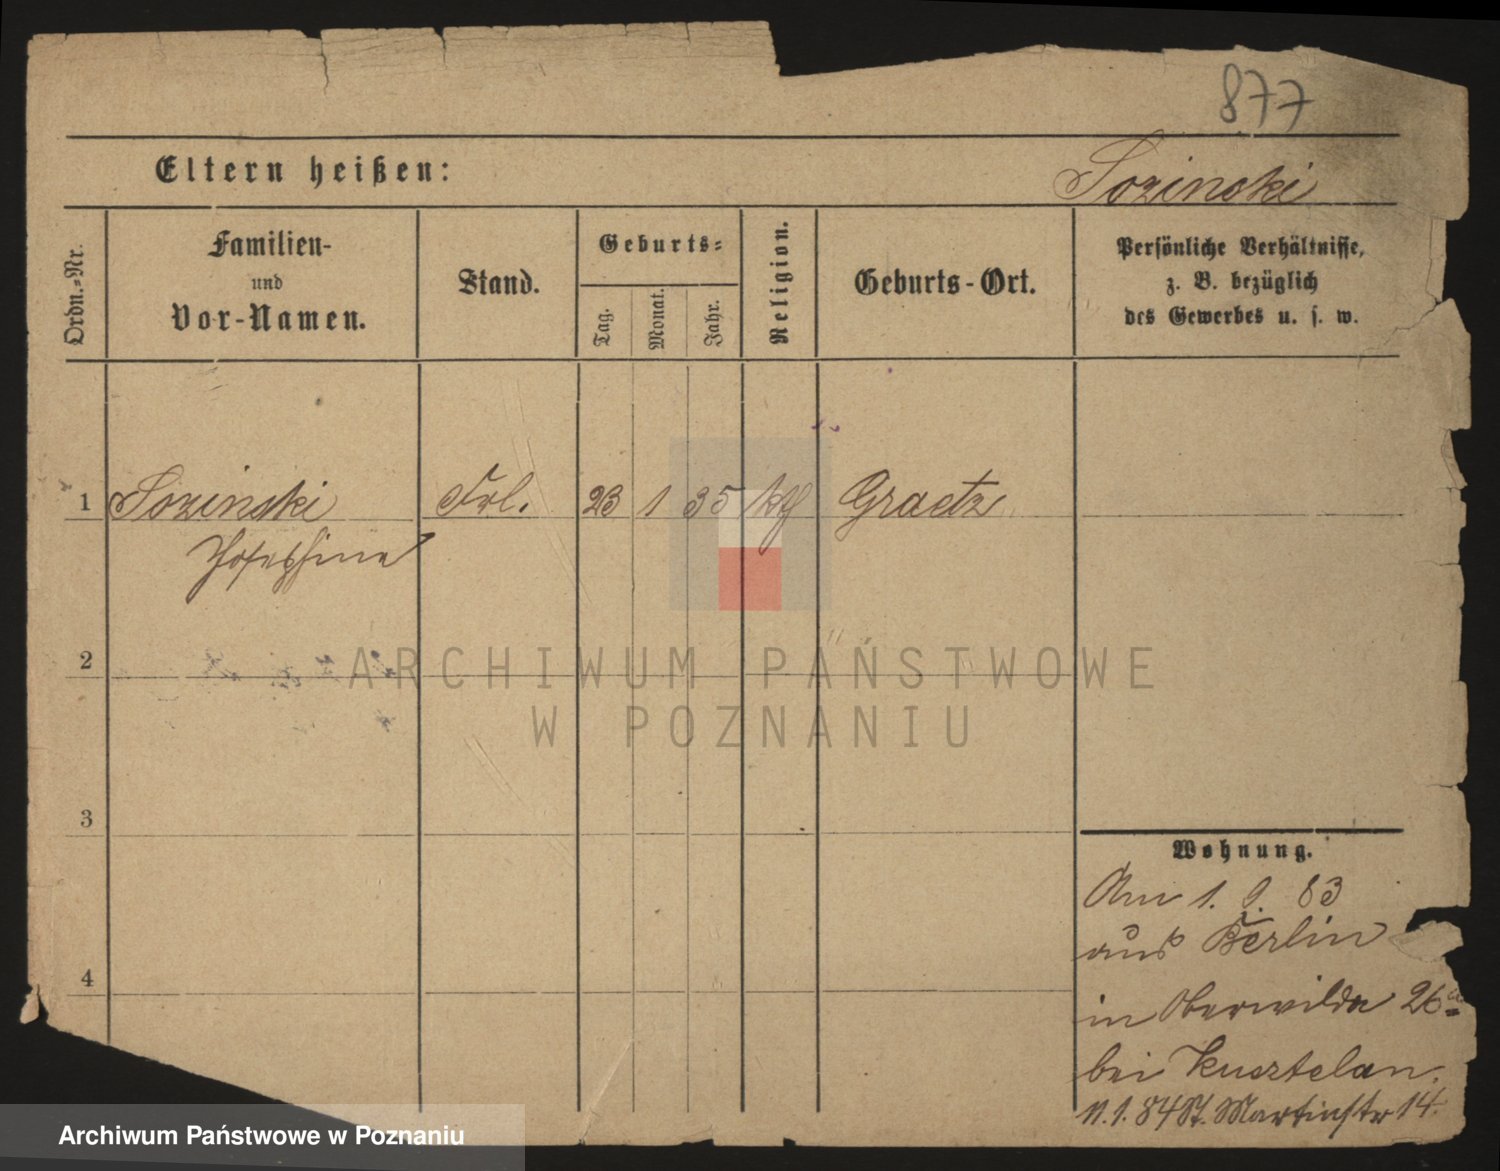 877
Eltern heißen:
Sozinski
Ordn.-Nr.
Familien-
und
Vor-Namen.
Stand.
Geburts-
Tag.
Monat.
Jahr.
Religion.
Geburts-Ort.
Persönliche Verhältnisse,
z. B. bezüglich
des Gewerbes u. s. w.
1 Sozinski Frl. 23 1 35 kth Graetz
Josephine
2
3
4
Wohnung.
Am 1. 9. 83
aus Berlin
in Oberwilda 26a
bei Kusztelan.
11.1.84 St. Martinstr 14.
ARCHIWUM PAŃSTWOWE
W POZNANIU
Archiwum Państwowe w Poznaniu